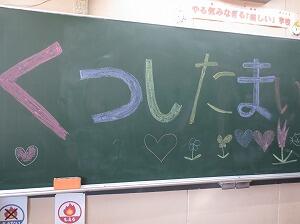 やる気みなぎる「楽しい」学校
くつしたま